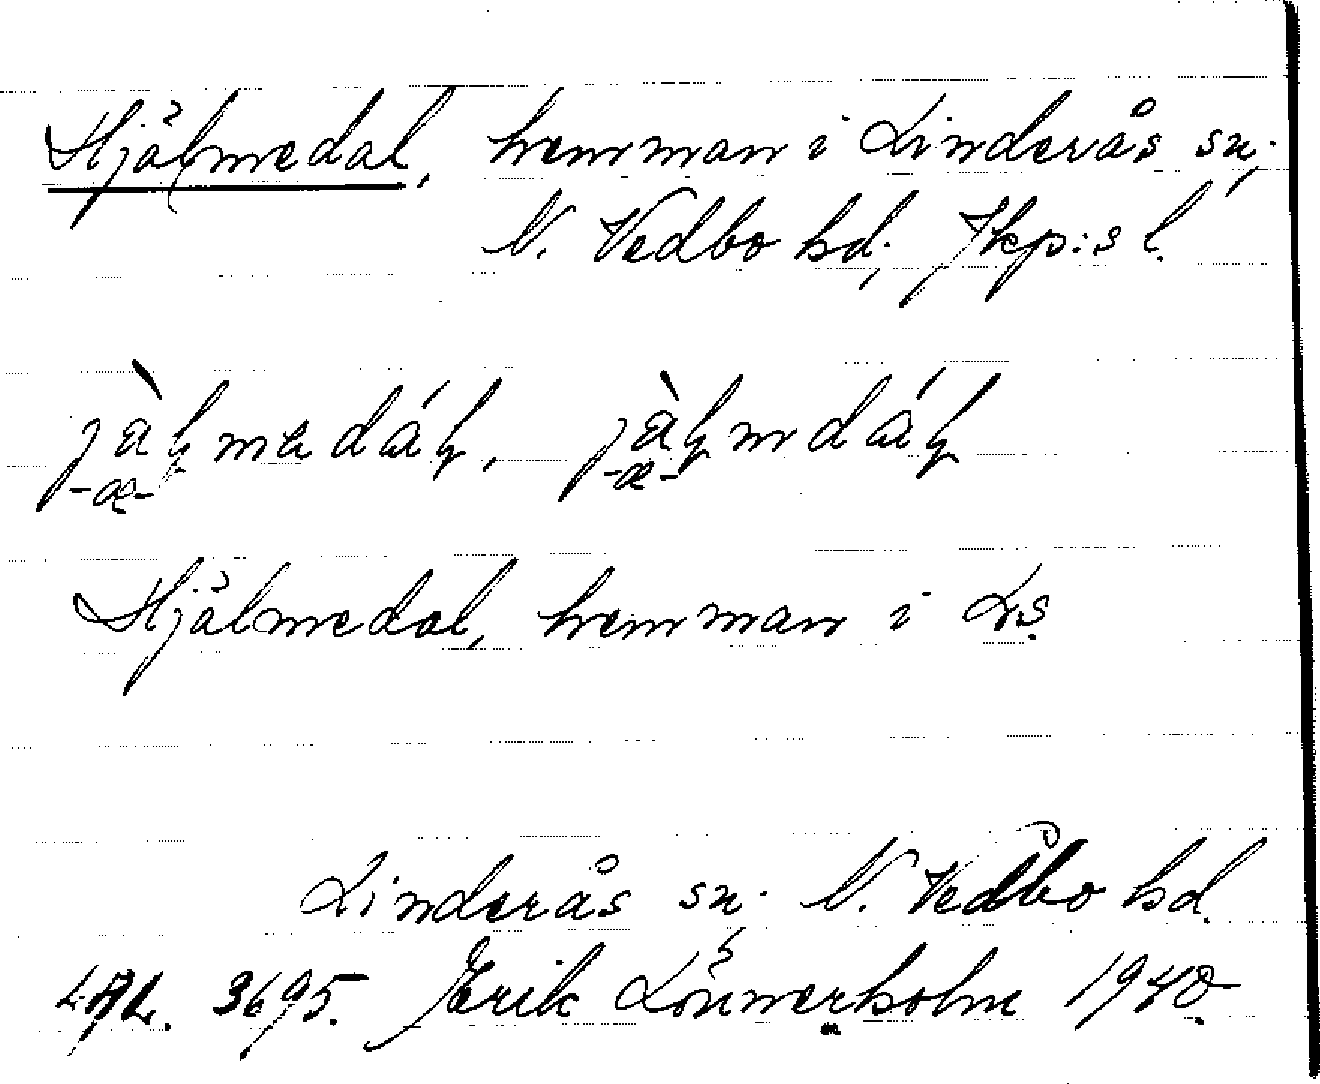 Hjälmedal, hemman i Linderås sn,
N. Vedbo hd, Jkp:s l.
jàɫmadáɫ, jàɫmdáɫ
-æ- -æ-
Hjälmedal, hemman i Ls.
Linderås sn. N. Vedbo hd.
LAL. 3695. Erik Lönnerholm 1940.